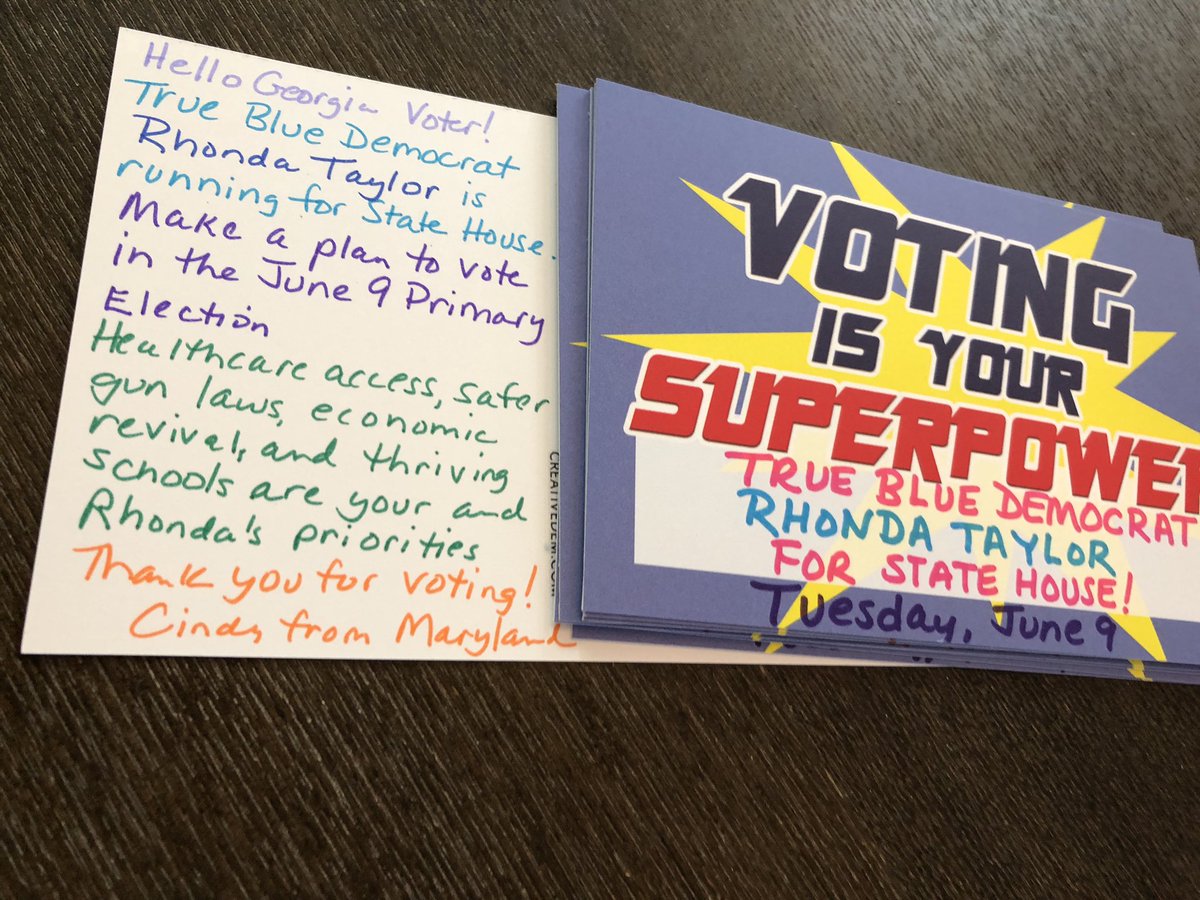 Hello Georgia Voter!
True Blue Democrat
Rhonda Taylor is
running for State House.
Make a plan to vote
in the June 9 Primary
Election
Healthcare access, safer
gun laws, economic
revival, and thriving
schools are your and
Rhonda's priorities
Thank you for voting!
Cindy from Maryland
CREATIVEDEM.COM
VOTING
IS YOUR
SUPERPOWER
TRUE BLUE DEMOCRAT
RHONDA TAYLOR
FOR STATE HOUSE!
Tuesday, June 9